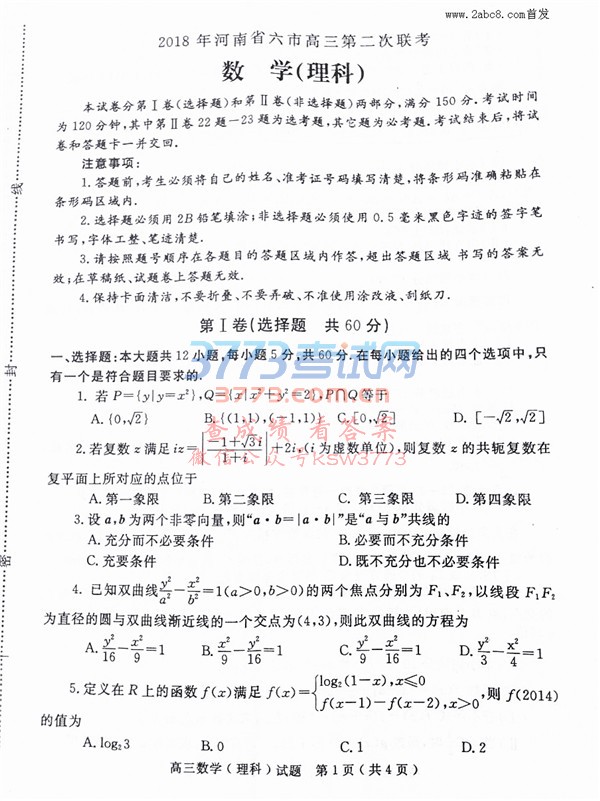 www.2abc8.com首发
2018年河南省六市高三第二次联考
数 学(理科)
本试卷分第Ⅰ卷(选择题)和第Ⅱ卷(非选择题)两部分,满分150分.考试时间
为120分钟,其中第Ⅱ卷22题-23题为选考题,其它题为必考题.考试结束后,将试
卷和答题卡一并交回.
注意事项:
1.答题前,考生必须将自己的姓名、准考证号码填写清楚,将条形码准确粘贴在
条形码区域内.
2.选择题必须用2B铅笔填涂;非选择题必须使用0.5毫米黑色字迹的签字笔
书写,字体工整、笔迹清楚.
3.请按照题号顺序在各题目的答题区域内作答,超出答题区域 书写的答案无
效;在草稿纸、试题卷上答题无效.
4.保持卡面清洁,不要折叠、不要弄破、不准使用涂改液、刮纸刀.
第Ⅰ卷(选择题 共60分)
3773考试网
一、选择题:本大题共12小题,每小题5分,共60分.在每小题给出的四个选项中,只
有一个是符合题目要求的.
www.3773.com.cn
1. 若P={y|y=x²},Q={x|x²+y²=2},P∩Q等于
A.{0,√2} B.{(1,1),(-1,1)} C.[0,√2] D.[-√2,√2]
查成绩 看答案
2.若复数z满足iz=|(-1+√3i)/(1+i)|+2i,(i为虚数单位),则复数z的共轭复数在
微信公众号KSW3773
复平面上所对应的点位于
A.第一象限 B.第二象限 C.第三象限 D.第四象限
3.设a,b为两个非零向量,则"a·b=|a·b|"是"a与b"共线的
A.充分而不必要条件 B.必要而不充分条件
C.充要条件 D.既不充分也不必要条件
4. 已知双曲线y²/a²-x²/b²=1(a>0,b>0)的两个焦点分别为F₁、F₂,以线段F₁F₂
为直径的圆与双曲线渐近线的一个交点为(4,3),则此双曲线的方程为
A.y²/16-x²/9=1 B.x²/9-y²/16=1 C.y²/9-x²/16=1 D.y²/3-x²/4=1
5.定义在R上的函数f(x)满足f(x)={log₂(1-x),x≤0
f(x-1)-f(x-2),x>0,则f(2014)
的值为
A.log₂3 B.0 C.1 D.2
高三数学(理科)试题 第1页(共4页)
线
封
密